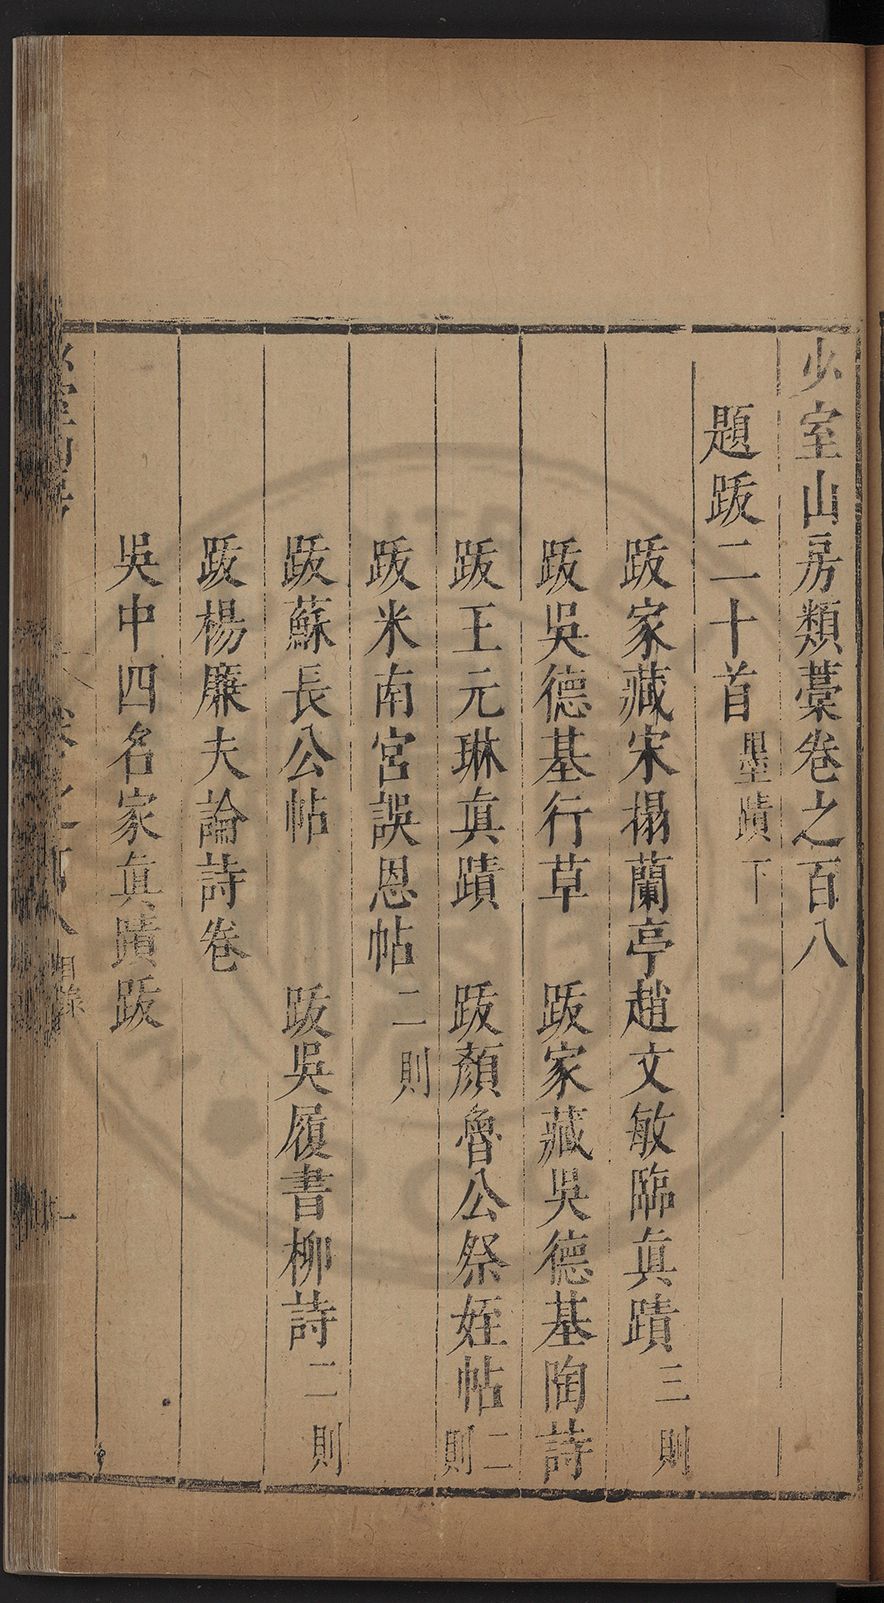 少室山房類藁卷之百八
題跋二十首墨蹟下
跋家藏宋搨蘭亭趙文敏臨眞蹟三則
跋吳德基行草　跋家藏吳德基陶詩
跋王元琳眞蹟　跋顏魯公祭姪帖二則
跋米南宮誤恩帖二則
跋蘇長公帖　跋吳履書柳詩二則
跋楊廉夫論詩卷
吳中四名家眞蹟跋
卷之百八目錄　一